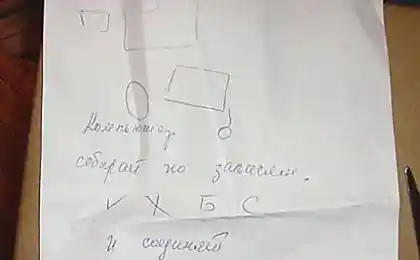 Компьютер
собирай по запасам.
V X Б С
и соединяй